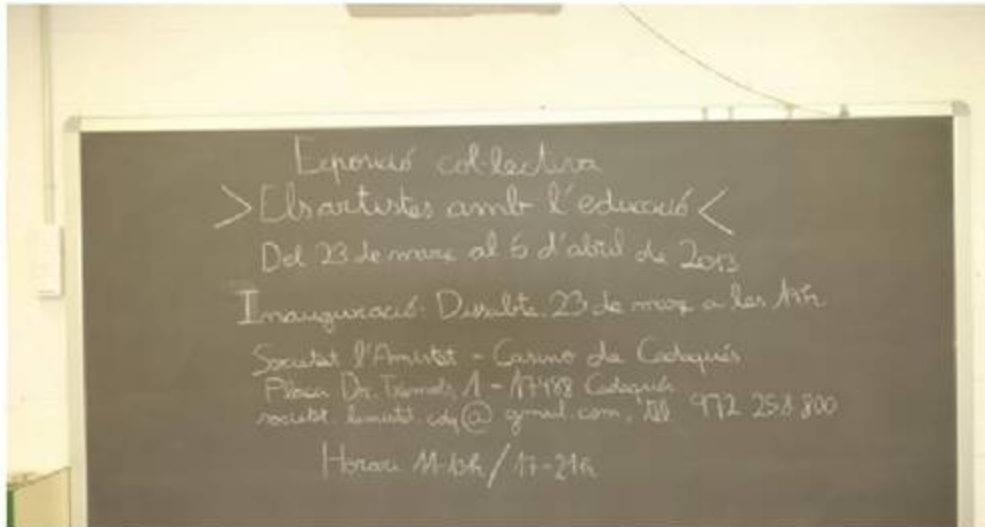 Exposició col·lectiva
>Els artistes amb l'educació<
Del 23 de març al 6 d'abril de 2013
Inauguració: Dissabte 23 de març a les 19h.
Societat l'Amistat - Casino de Cadaqués
Plaça Dr. Trèmols, 1 - 17488 Cadaqués
@gmail.com, Tel 972 258 800
Horari 11-13h / 17-21h